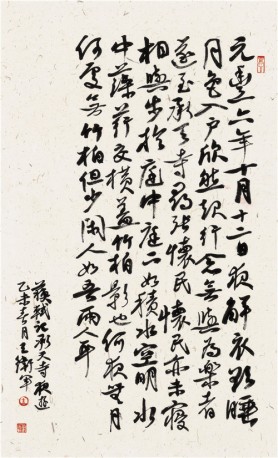 元丰六年十月十二日夜解衣欲睡
月色入户欣然起行念无与为乐者
遂至承天寺寻张怀民怀民亦未寝
相与步於庭中庭下如积水空明水
中藻荇交横盖竹柏影也何夜无月
何处无竹柏但少闲人如吾两人耳
苏轼记承天寺夜游
乙未春月王卫军